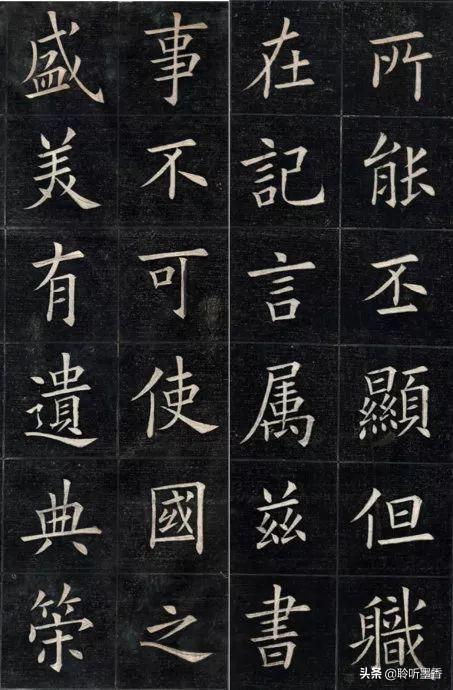 所能丕顯但職
在記言属兹書
事不可使國之
盛美有遺典策
头条 @聆听墨香